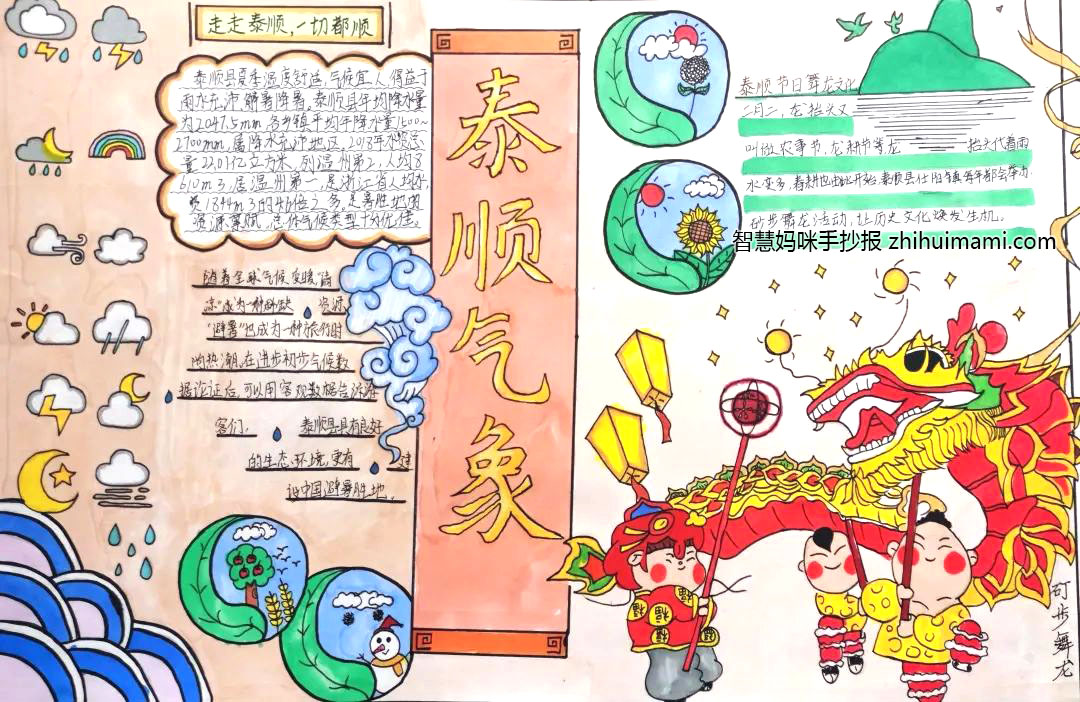 走走泰顺，一切都顺
泰顺县夏季温度舒适，气候宜人，得益于
雨水充沛解暑降暑。泰顺县年均降水量
为2047.5mm，各乡镇平均年降水量1600~
2700mm，属降水充沛地区，2018年水资总
量22.01亿立方米，列温州第2，人均8
610m3，居温州第一，是浙江省人均水
1844m3的4倍之多，是
资源禀赋，总体气候类型十分优佳。
随着全球气候变暖，"清
凉"成为一种 资源，
"避暑"也成为一种旅行时
的热潮。在进步初步气候数
据论证后，可以用客观数据告诉游
客们， 泰顺县具有良好
的生态环境，更有 建
设中国避暑胜地。
泰顺气象
泰顺节日舞龙文化
二月二，龙抬头又
叫做农事节，龙耕节等龙 抬头代着雨
水变多，春耕也由此开始，泰顺县仕阳镇每年都会举办
矴步舞龙活动，让历史文化焕发生机。
智慧妈咪手抄报 zhihuimami.com
福
福
福
矴步舞龙